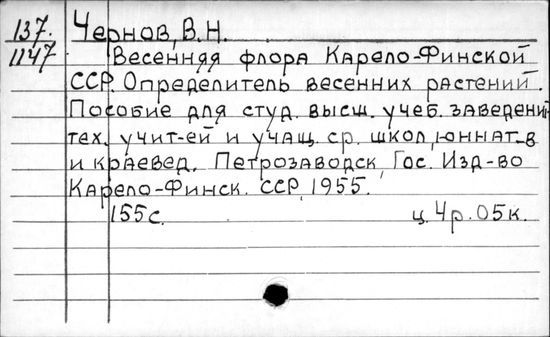 137. Чернов, В.Н.
1147 Весенняя флора Карело-Финской
ССР. Определитель весенних растений.
Пособие для студ. высш. учеб. заведени
тех. учит-ей и учащ. ср. школ, юннат-в
и краевед. Петрозаводск, Гос. Изд-во
Карело-Финск. ССР, 1955.
155с. ц. 4р. 05к.